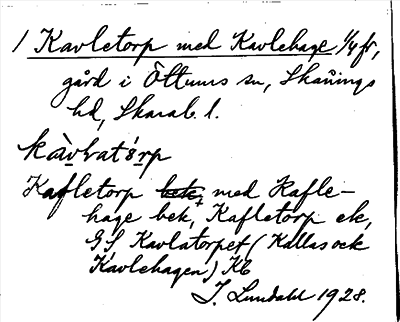 1 Kavletorp med Kavlehage 1/4 fr,
gård i Öttums sn, Skånings
hd, Skarab. l.
Kafletorp bek, med Kafle-
hage bek, Kafletorp ek,
GS Kavlatorpet (Kallas ock
Kavlehagen) Kb
J. Lundahl 1928.